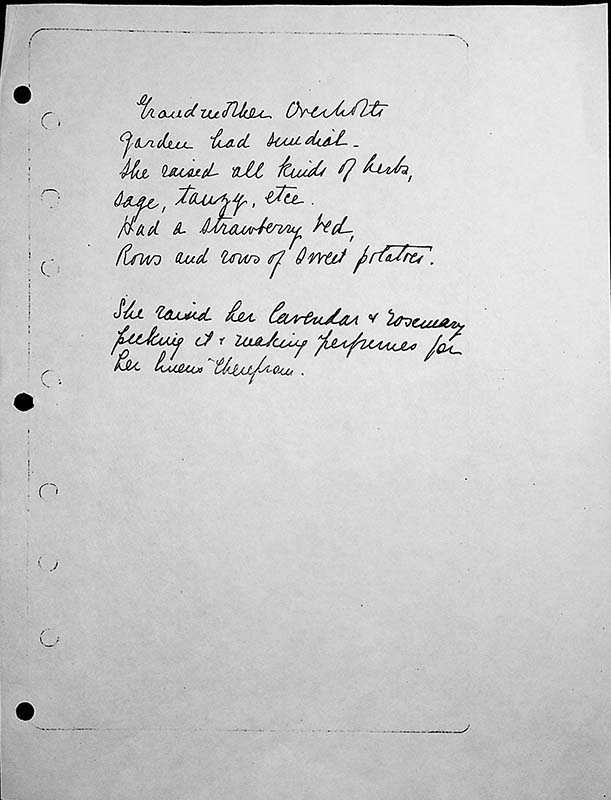 Grandmother Overholts
garden had sundial -
She raised all kinds of herbs,
sage, tanzy, etce.
Had a strawberry bed,
Rows and rows of sweet potatoes.
She raised her lavendar & rosemary
picking it & making perfumes for
her linens therefrom.